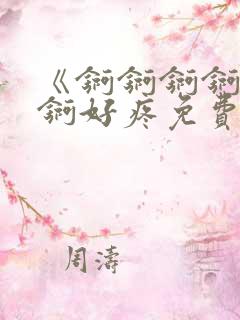 《锕锕锕锕
锕好疼免費
周濤